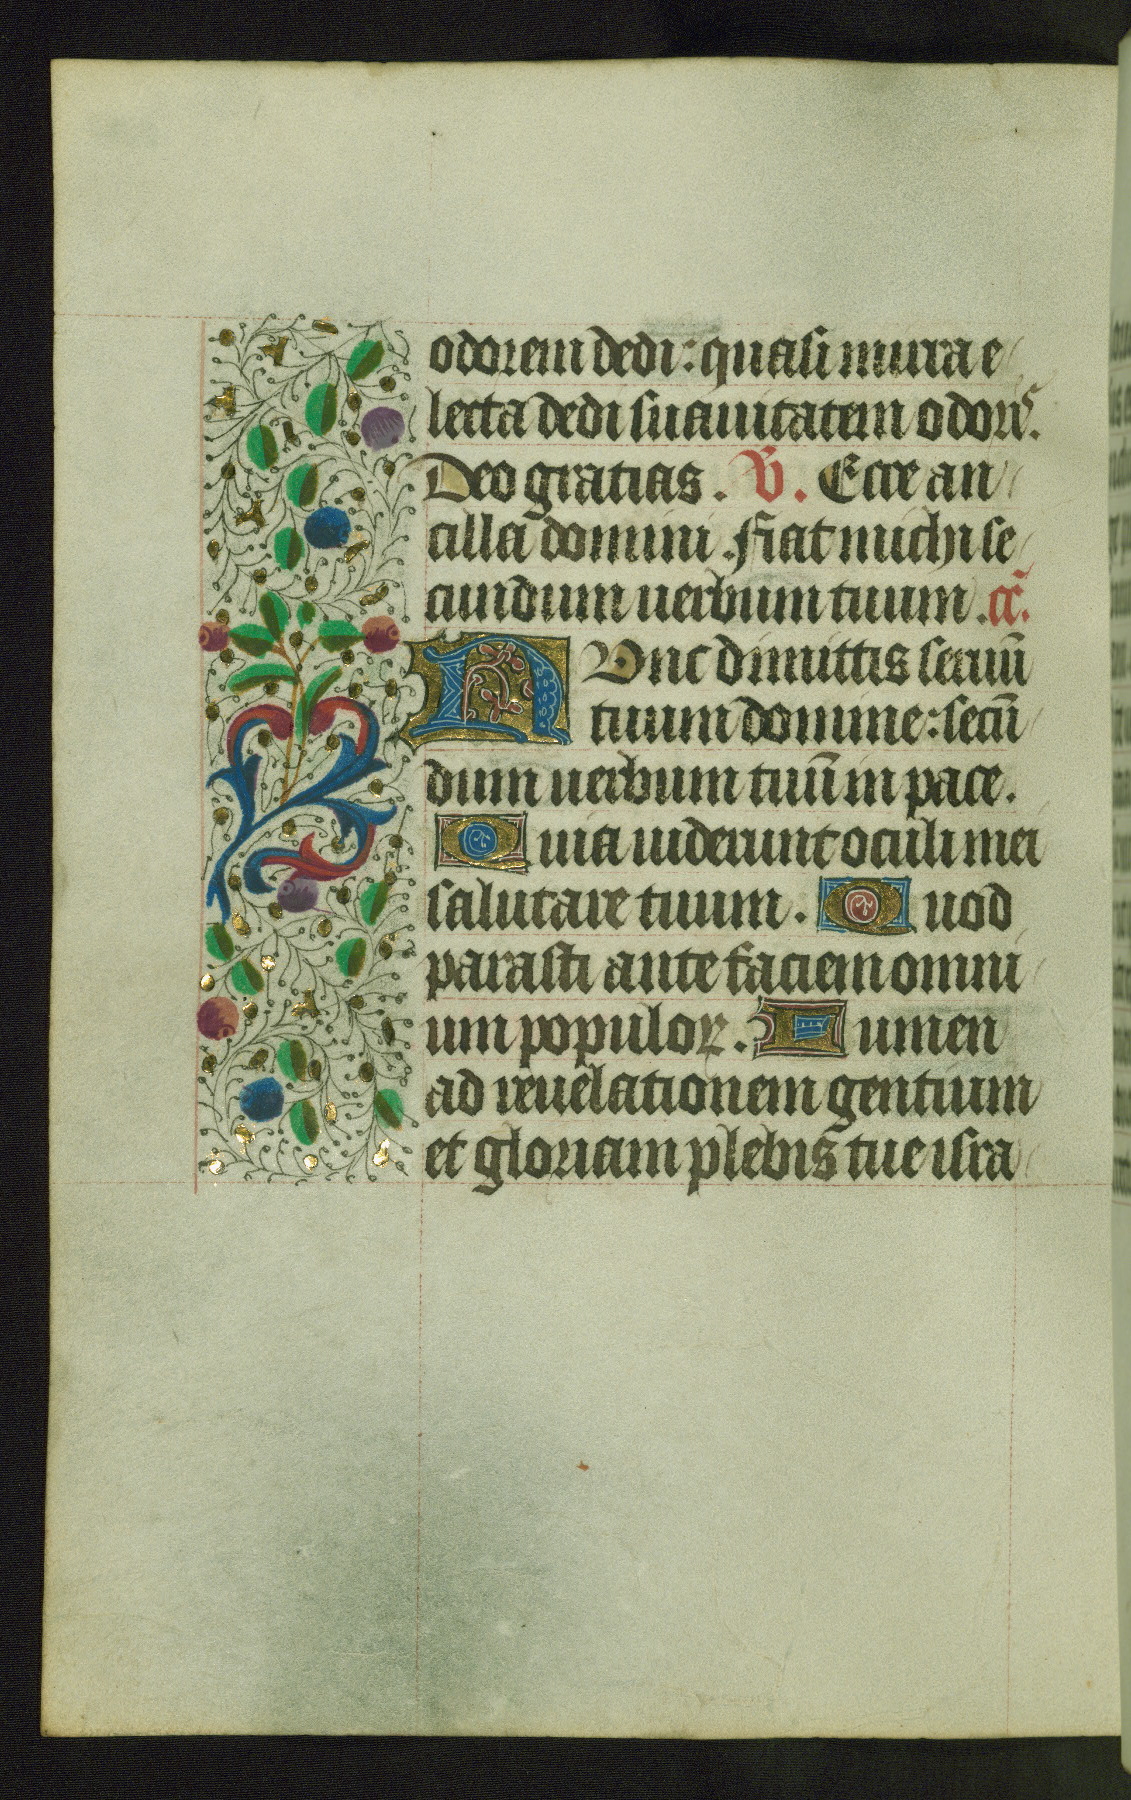 odorem dedi: quasi mirra e
lecta dedi suauitatem odoris.
Deo gratias. V. Ecce an
cilla domini. Fiat michi se
cundum uerbum tuum. cā.
Nunc dimittis seruū
tuum domine: secū
dum uerbum tuū in pace.
Quia uiderunt oculi mei
salutare tuum. Quod
parasti ante faciem omni
um populoꝝ. Lumen
ad reuelationem gentium
et gloriam plebis tue isra